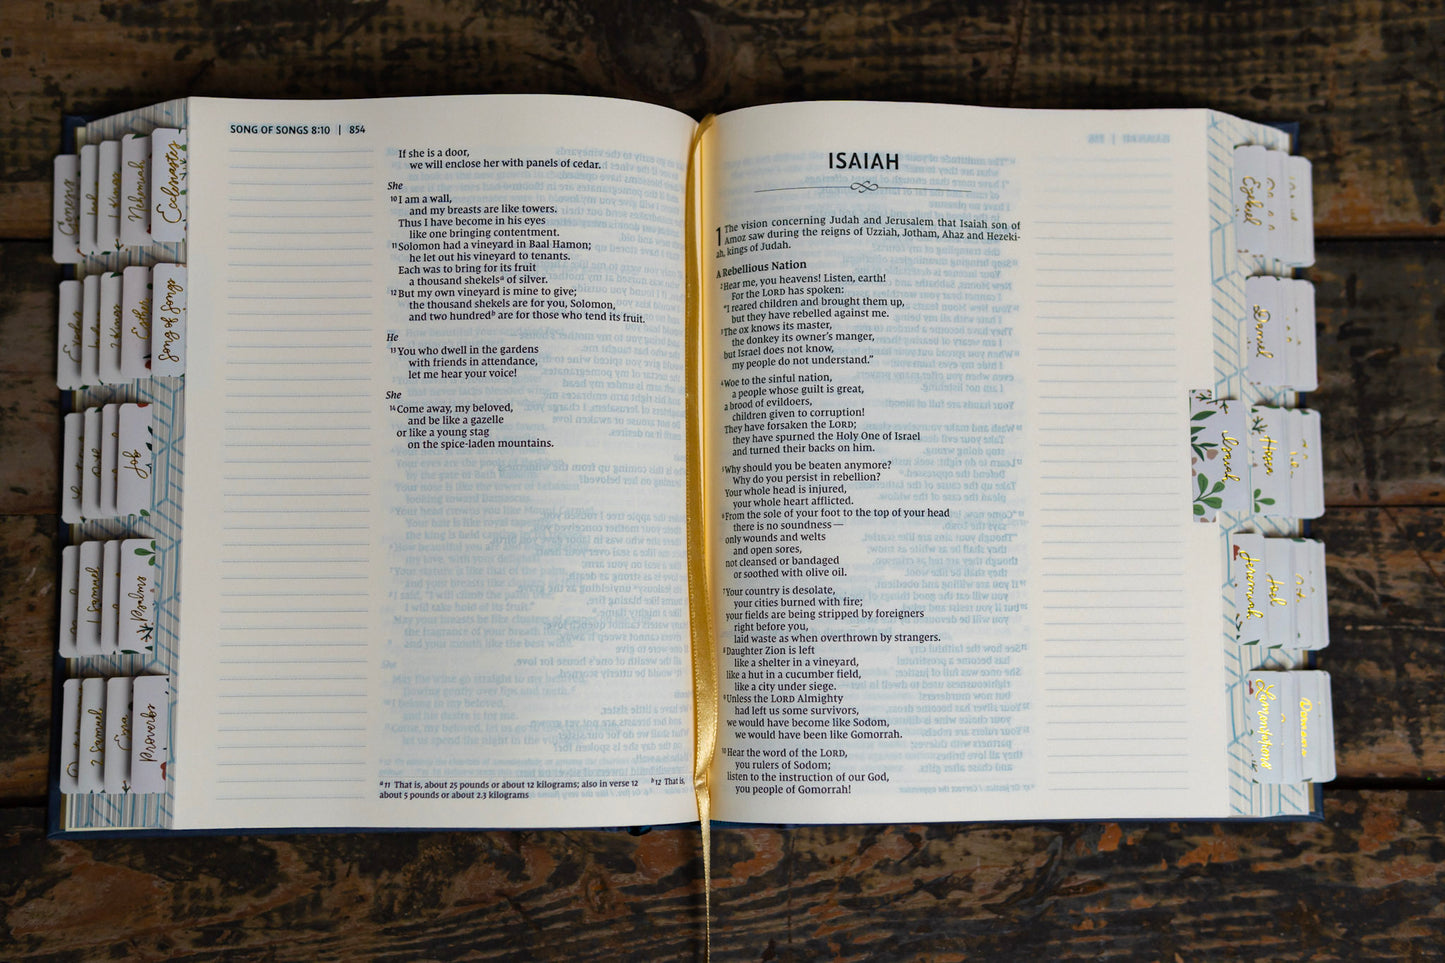 SONG OF SONGS 8:10 | 854
If she is a door,
we will enclose her with panels of cedar.
She
10 I am a wall,
and my breasts are like towers.
Thus I have become in his eyes
like one bringing contentment.
11 Solomon had a vineyard in Baal Hamon;
he let out his vineyard to tenants.
Each was to bring for its fruit
a thousand shekels a of silver.
12 But my own vineyard is mine to give;
the thousand shekels are for you, Solomon,
and two hundred b are for those who tend its fruit.
He
13 You who dwell in the gardens
with friends in attendance,
let me hear your voice!
She
14 Come away, my beloved,
and be like a gazelle
or like a young stag
on the spice-laden mountains.
a 11 That is, about 25 pounds or about 12 kilograms; also in verse 12 b 12 That is,
about 5 pounds or about 2.3 kilograms
ISAIAH
1 The vision concerning Judah and Jerusalem that Isaiah son of
Amoz saw during the reigns of Uzziah, Jotham, Ahaz and Hezeki-
ah, kings of Judah.
A Rebellious Nation
2 Hear me, you heavens! Listen, earth!
For the LORD has spoken:
"I reared children and brought them up,
but they have rebelled against me.
3 The ox knows its master,
the donkey its owner's manger,
but Israel does not know,
my people do not understand."
4 Woe to the sinful nation,
a people whose guilt is great,
a brood of evildoers,
children given to corruption!
They have forsaken the LORD;
they have spurned the Holy One of Israel
and turned their backs on him.
5 Why should you be beaten anymore?
Why do you persist in rebellion?
Your whole head is injured,
your whole heart afflicted.
6 From the sole of your foot to the top of your head
there is no soundness—
only wounds and welts
and open sores,
not cleansed or bandaged
or soothed with olive oil.
7 Your country is desolate,
your cities burned with fire;
your fields are being stripped by foreigners
right before you,
laid waste as when overthrown by strangers.
8 Daughter Zion is left
like a shelter in a vineyard,
like a hut in a cucumber field,
like a city under siege.
9 Unless the LORD Almighty
had left us some survivors,
we would have become like Sodom,
we would have been like Gomorrah.
10 Hear the word of the LORD,
you rulers of Sodom;
listen to the instruction of our God,
you people of Gomorrah!
Genesis
1 Kings
Nehemiah
Ecclesiastes
Exodus
2 Kings
Esther
Song of Songs
Job
1 Samuel
Psalms
2 Samuel
Ezra
Proverbs
Ezekiel
Daniel
Isaiah
Hosea
Jeremiah
Joel
Lamentations